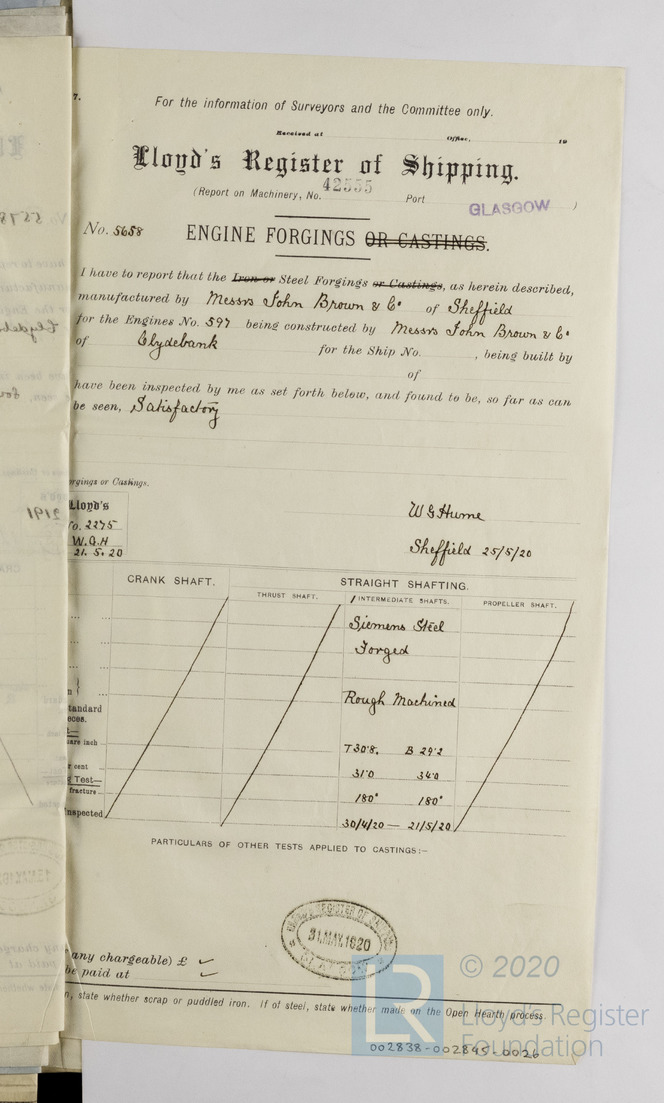 7.
For the information of Surveyors and the Committee only.
Received at Office, 19
Lloyd's Register of Shipping.
(Report on Machinery, No. 42555 Port GLASGOW )
No. 5658 ENGINE FORGINGS OR CASTINGS.
I have to report that the Iron or Steel Forgings or Castings, as herein described,
manufactured by Messrs John Brown & Co of Sheffield
for the Engines No. 597 being constructed by Messrs John Brown & Co
of Clydebank for the Ship No. , being built by
of
have been inspected by me as set forth below, and found to be, so far as can
be seen, Satisfactory
orgings or Castings.
Lloyd's
o. 2275
W.G.H
21.5.20
W G Hume
Sheffield 25/5/20
CRANK SHAFT. STRAIGHT SHAFTING.
THRUST SHAFT. 1 INTERMEDIATE SHAFTS. PROPELLER SHAFT.
Siemens Steel
Forged
n }
Rough Machined
tandard
eces.
t—
uare inch T 30·8. B 29·2
r cent 31·0 34·0
g Test—
fracture 180° 180°
nspected 30/4/20 — 21/5/20
PARTICULARS OF OTHER TESTS APPLIED TO CASTINGS:—
LLOYD'S REGISTER OF SHIPPING
31.MAY.1920
GLASGOW
any chargeable) £ ✓
be paid at ✓
n, state whether scrap or puddled iron. If of steel, state whether made on the Open Hearth process
LR
© 2020
Lloyd's Register
Foundation
002838-002845-0026